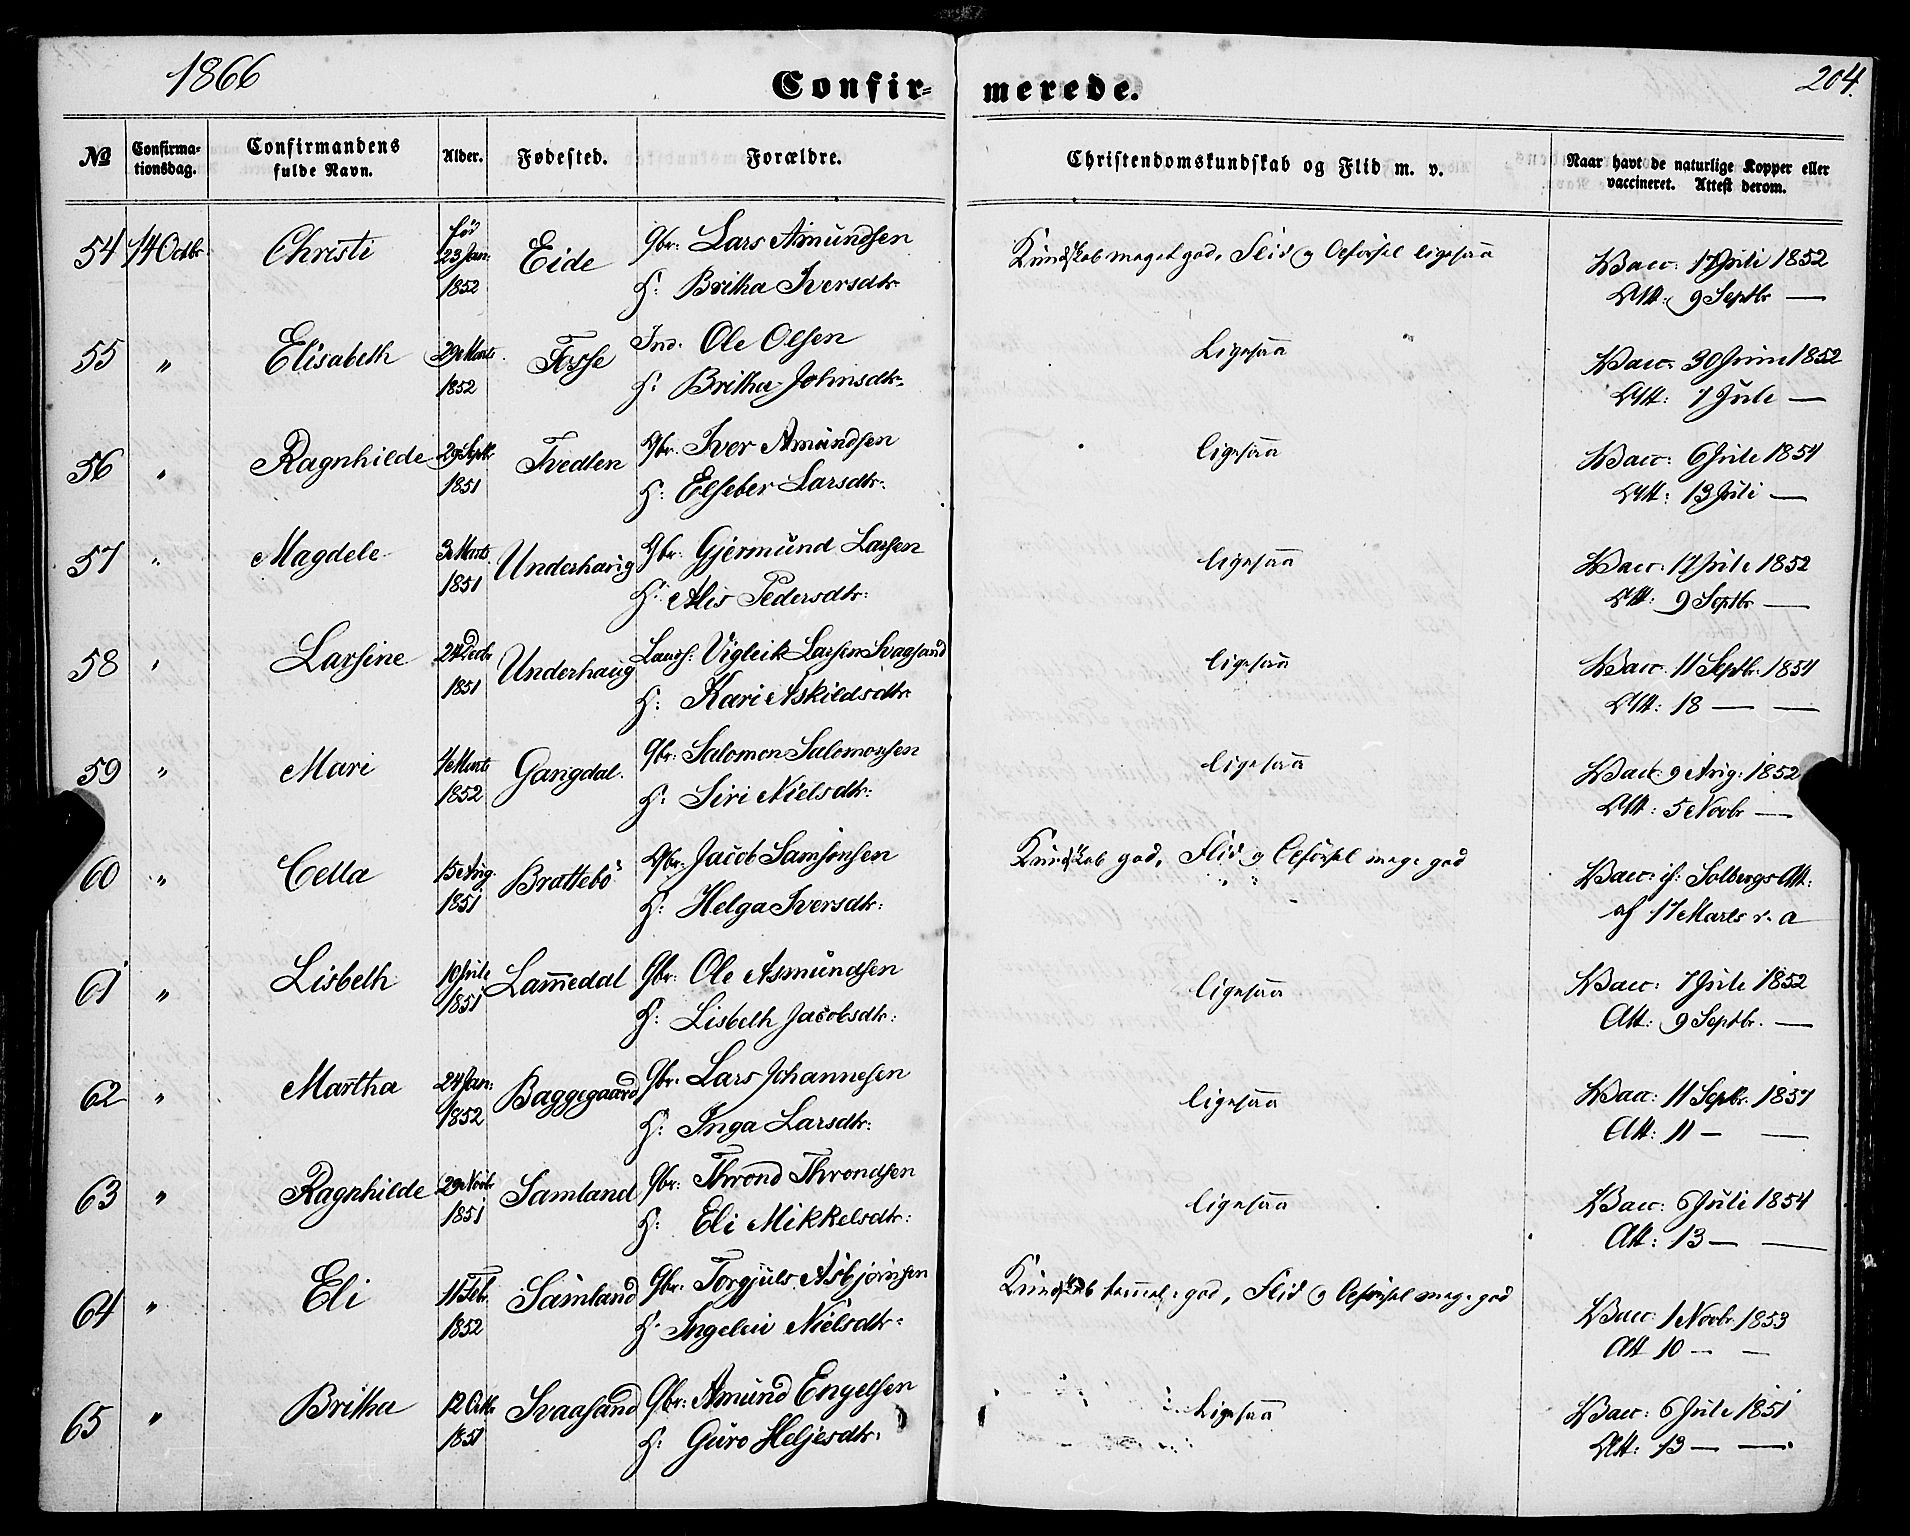 1866
Confir-
merede.
204.
No
Confirma-
tionsdag.
Confirmandens
fulde Navn.
Alder.
Fødested.
Forældre.
Christendomskundskab og Flid m. v.
Naar havt de naturlige Kopper eller
vaccineret. Attest derom.
54 14 Octbr Christi fød 23 Jan: 1852 Eide Gbr: Lars Amundsen
H: Britha Iversdtr
Kundskab meget god, Flid og Opførsel ligesaa
Vacc: 17 Juli 1852
Att: 9 Septbr —
55 " Elisabeth 29 Marts 1852 Fosse Ind. Ole Olsen
H: Britha Johnsdtr
Ligesaa
Vacc: 30 Juni 1852
Att: 7 Jule —
56 " Ragnhilde 29 Sept 1851 Tvedten Gbr: Iver Amundsen
H: Elseber Larsdtr:
ligesaa
Vacc: 6 Jule 1854
Att: 13 Juli —
57 " Magdele 3 Marts 1851 Underhaug Gbr: Gjermund Larsen
H: Alis Pedersdtr:
ligesaa
Vacc: 17 Jule 1852
Att: 9 Septbr —
58 " Larsine 24 Decbr 1851 Underhaug Vigleik Larsen Svaasand
H: Kari Askildsdtr
ligesaa
Vacc: 11 Septbr. 1854
Att: 18 — —
59 " Mari 4 Marts 1852 Gangdal. Gbr: Salomon Salomonsen
H: Siri Nielsdtr:
ligesaa
Vacc: 9 Aug: 1852
Att: 5 Novbr —
60 " Cella 15 Aug. 1851 Brattebö Gbr: Jacob Samsonsen
H: Helga Iversdtr:
Kundskab god, Flid og Opførsel mege god
Vacc: if: Solbergs Att:
af 17 Marts d. a
61 " Lisbeth 10 Jule 1851 Lam̅edal Gbr: Ole Asmundsen
H: Lisbeth Jacobsdtr:
ligesaa
Vacc: 7 Jule 1852
Att: 9 Septbr. —
62 " Martha 24 Jan: 1852 Baggegaard Gbr: Lars Johannesen
H: Inga Larsdtr:
ligesaa
Vacc: 11 Sepbr. 1857
Att: 11 — —
63 " Ragnhilde 29 Novbr 1851 Samland Gbr: Thrond Throndsen
H: Eli Mikkelsdtr:
ligesaa
Vacc: 6 Juli 1854
Att: 13 — —
64 " Eli 11 Feb. 1852 Samland Gbr: Torgjuls Asbjørnsen
H: Ingeleiv Nielsdtr:
Kundskab god, Flid og Opførsel mege god
Vacc: 1 Novbr. 1853
Att 10 — —
65 " Britha 12 Octbr 1851 Svaasand Gbr: Amund Engelsen
H: Guro Heljesdtr:
Ligesaa
Vacc: 6 Jule 1851
Att: 13 — —